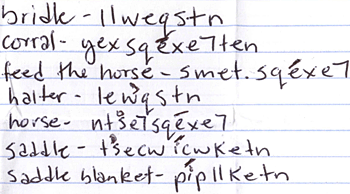 bridle - llweqstn
corral - yexsqéxe7ten
feed the horse - smet. sqéxe7
halter - lewqstn
horse - ntse7sqéxe7
saddle - tsecwícwketn
saddle blanket - pípllketn